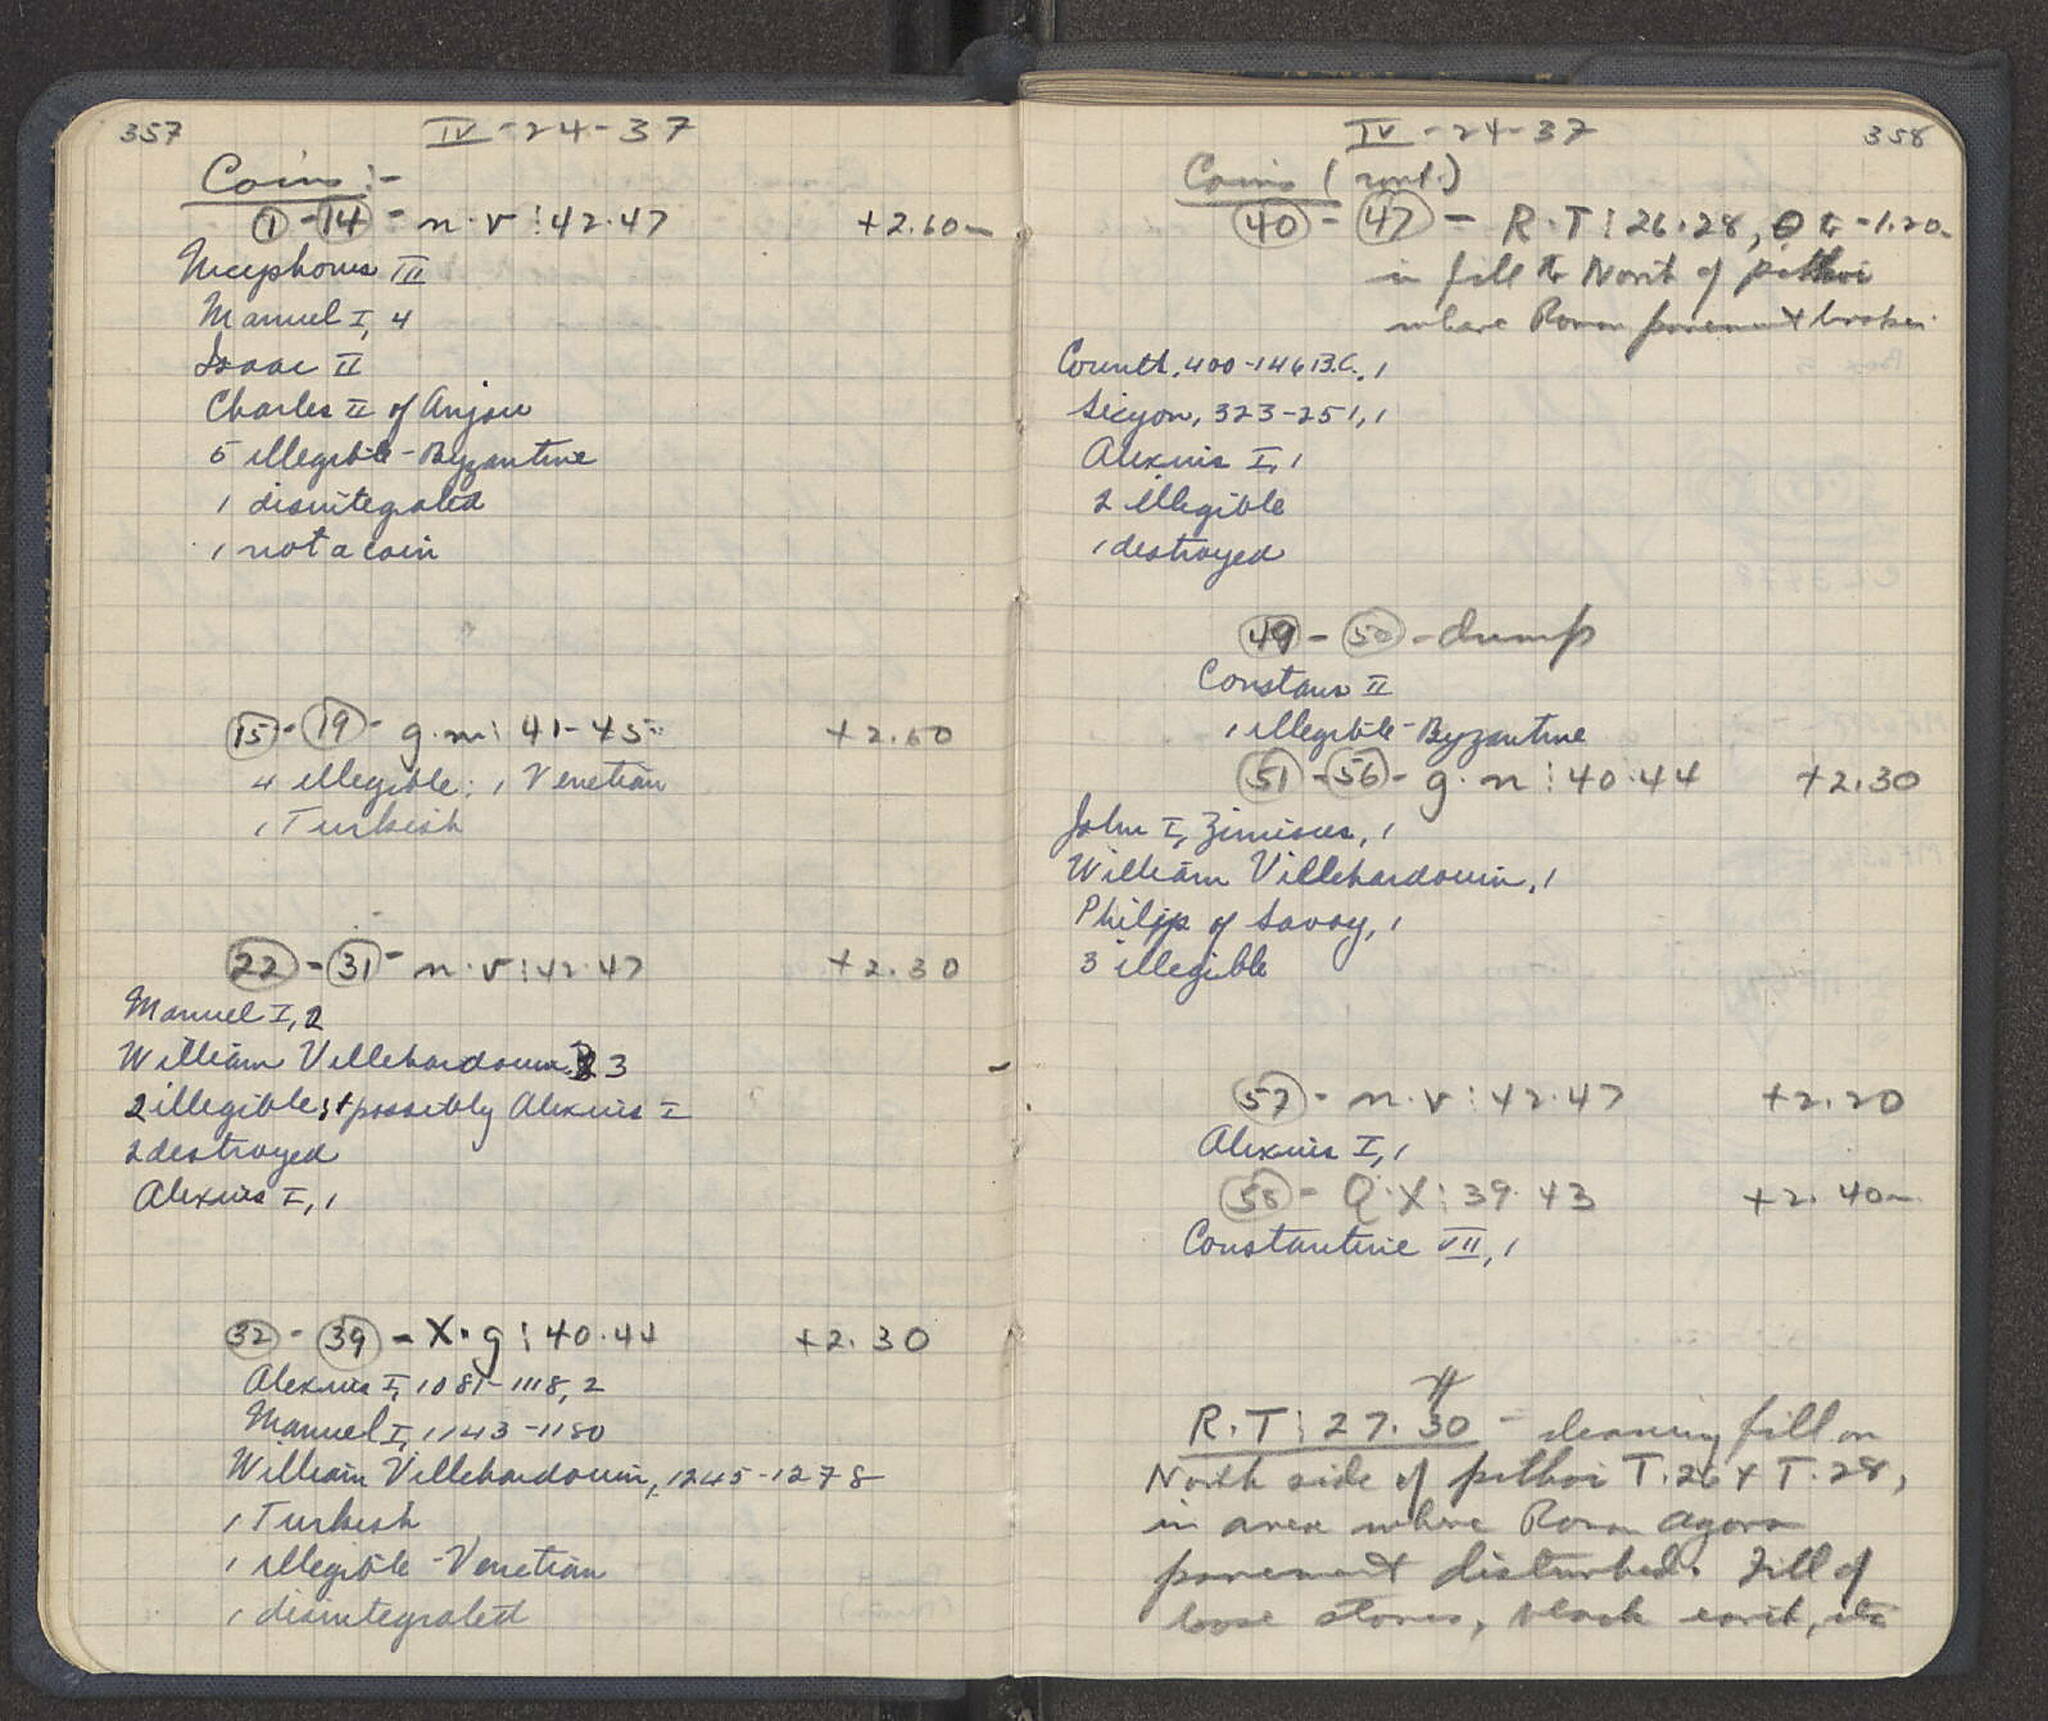 357
IV-24-37
Coins:-
1 - 14 - n·v:42·47 +2.60m
Nicephorus III
Manuel I, 4
Isaac II
Charles II of Anjou
5 illegible - Byzantine
1 disintegrated
1 not a coin
15 - 19 - g·m: 41-45 +2.60
4 illegible; 1 Venetian
1 Turkish
22 - 31 - n·v:42·47 +2.30
Manuel I, 2
William Villehardouin 3
2 illegible; 1 possibly Alexius I
2 destroyed
Alexius I, 1
32 - 39 - X·g:40·44 +2.30
Alexius I, 1081-1118, 2
Manuel I, 1143-1180
William Villehardouin, 1245-1278
1 Turkish
1 illegible - Venetian
1 disintegrated
IV-24-37
358
Coins (cont.)
40 - 47 - R·T:26·28, θ to -1.20m
in fill to North of pithoi
where Roman pavement broken.
Corinth, 400-146 B.C., 1
Sicyon, 323-251, 1
Alexius I, 1
2 illegible
1 destroyed
49 - 50 - dump
Constans II
1 illegible - Byzantine
51 - 56 - g·n:40·44 +2.30
John I, Zimisces, 1
William Villehardouin, 1
Philip of Savoy, 1
3 illegible
57 - n·v:42·47 +2.20
Alexius I, 1
58 - Q·X:39·43 +2.40m
Constantine VII, 1
R·T:27·30 - cleaning fill on
North side of pithoi T.26 + T.28,
in area where Roman agora
pavement disturbed. Fill of
loose stones, black earth, etc